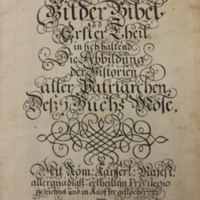 Bilder Bibel
Erster Theil
in sich haltend
Die Abbildung
der Historien
aller Patriarchen
Deß I Buchs Mose.
Mit Röm. Kayserl. Majest.
allergnädigst ertheiltem Privilegio
gezeichnet und in Kupffer gestochen